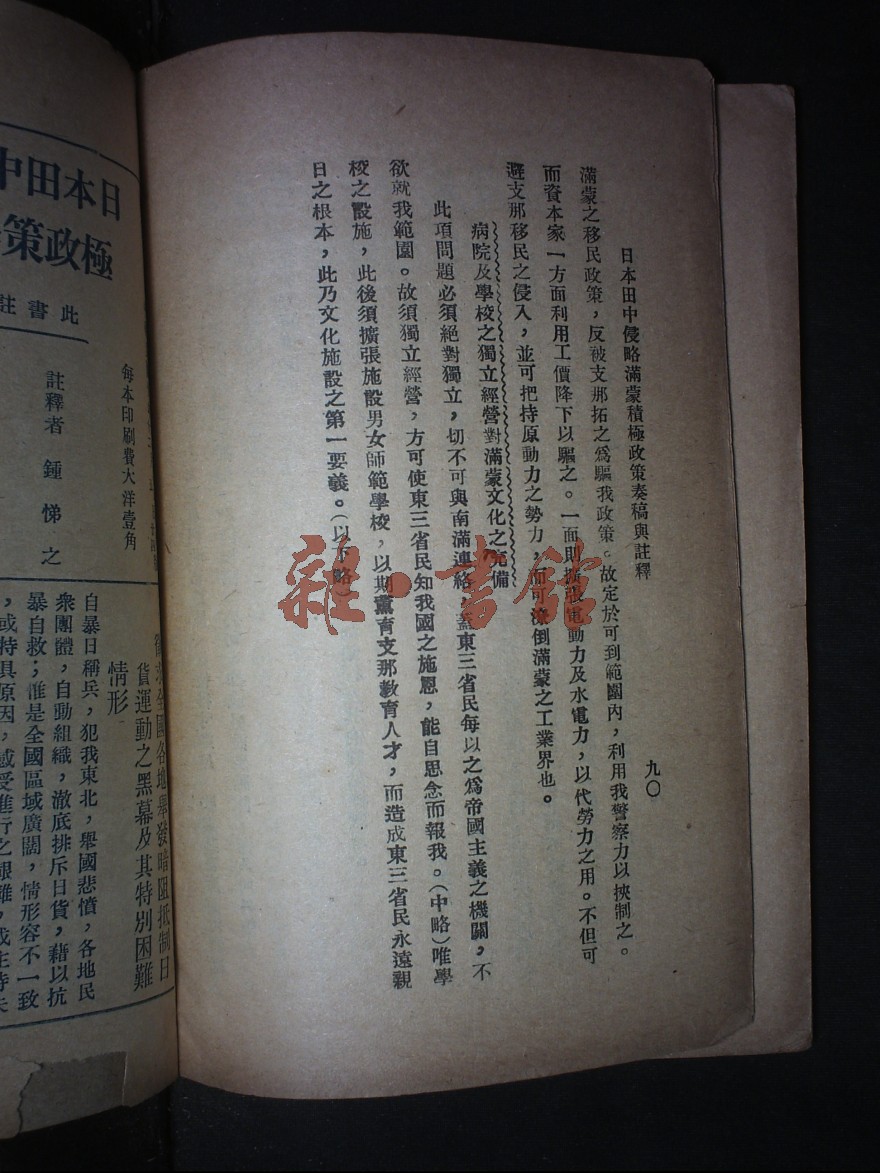 日本田中侵略滿蒙積極政策奏稿與註釋
九〇
滿蒙之移民政策，反被支那拓之爲驅我政策。故定於可到範圍內，利用我警察力以挾制之。
而資本家一方面利用工價降下以驅之。一面則擴張電動力及水電力，以代勞力之用。不但可
避支那移民之侵入，並可把持原動力之勢力，而可滾倒滿蒙之工業界也。
病院及學校之獨立經營對滿蒙文化之充備
此項問題必須絕對獨立，切不可與南滿連絡，蓋東三省民每以之爲帝國主義之機關，不
欲就我範圍。故須獨立經營，方可使東三省民知我國之施恩，能自思念而報我。（中略）唯學
校之設施，此後須擴張施設男女師範學校，以期薰育支那教育人才，而造成東三省民永遠親
日之根本，此乃文化施設之第一要義。（以下略）
雜·書館
日本田中
極政策
此書註
每本印刷費大洋壹角
註釋者 鍾悌之
全國各地舉發暗阻抵制日
貨運動之黑幕及其特別困難
情形
自暴日稱兵，犯我東北，舉國悲憤，各地民
衆團體，自動組織，澈底排斥日貨，藉以抗
暴自救；惟是全國區域廣闊，情形容不一致
，或持具原因，感受進行之艱難，或主持